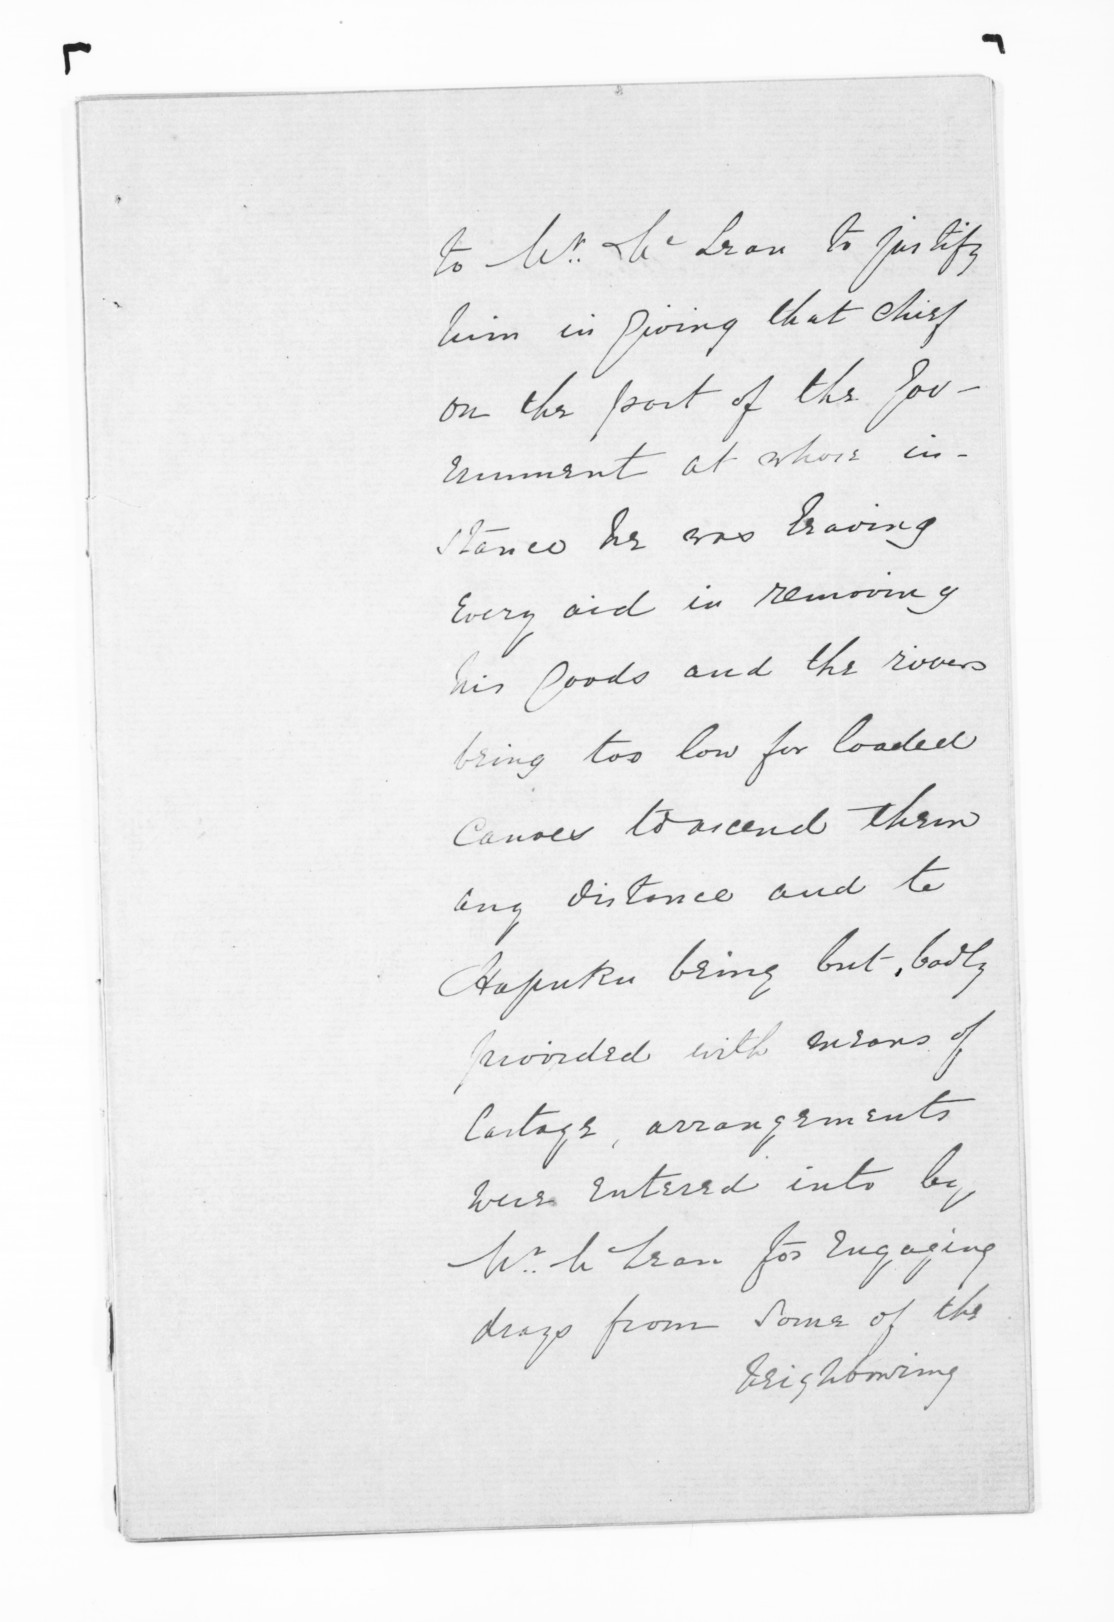 to Mr. Mc Lean to justify
him in giving that chief
on the part of the Gov-
ernment at whose in-
stance he was leaving
every aid in removing
his goods and the rivers
being too low for loaded
canoes to ascend them
any distance and te
Hapuku being but badly
provided with means of
Cartage, arrangements
were entered into by
Mr. Mc Lean for engaging
drays from some of the
neighbouring